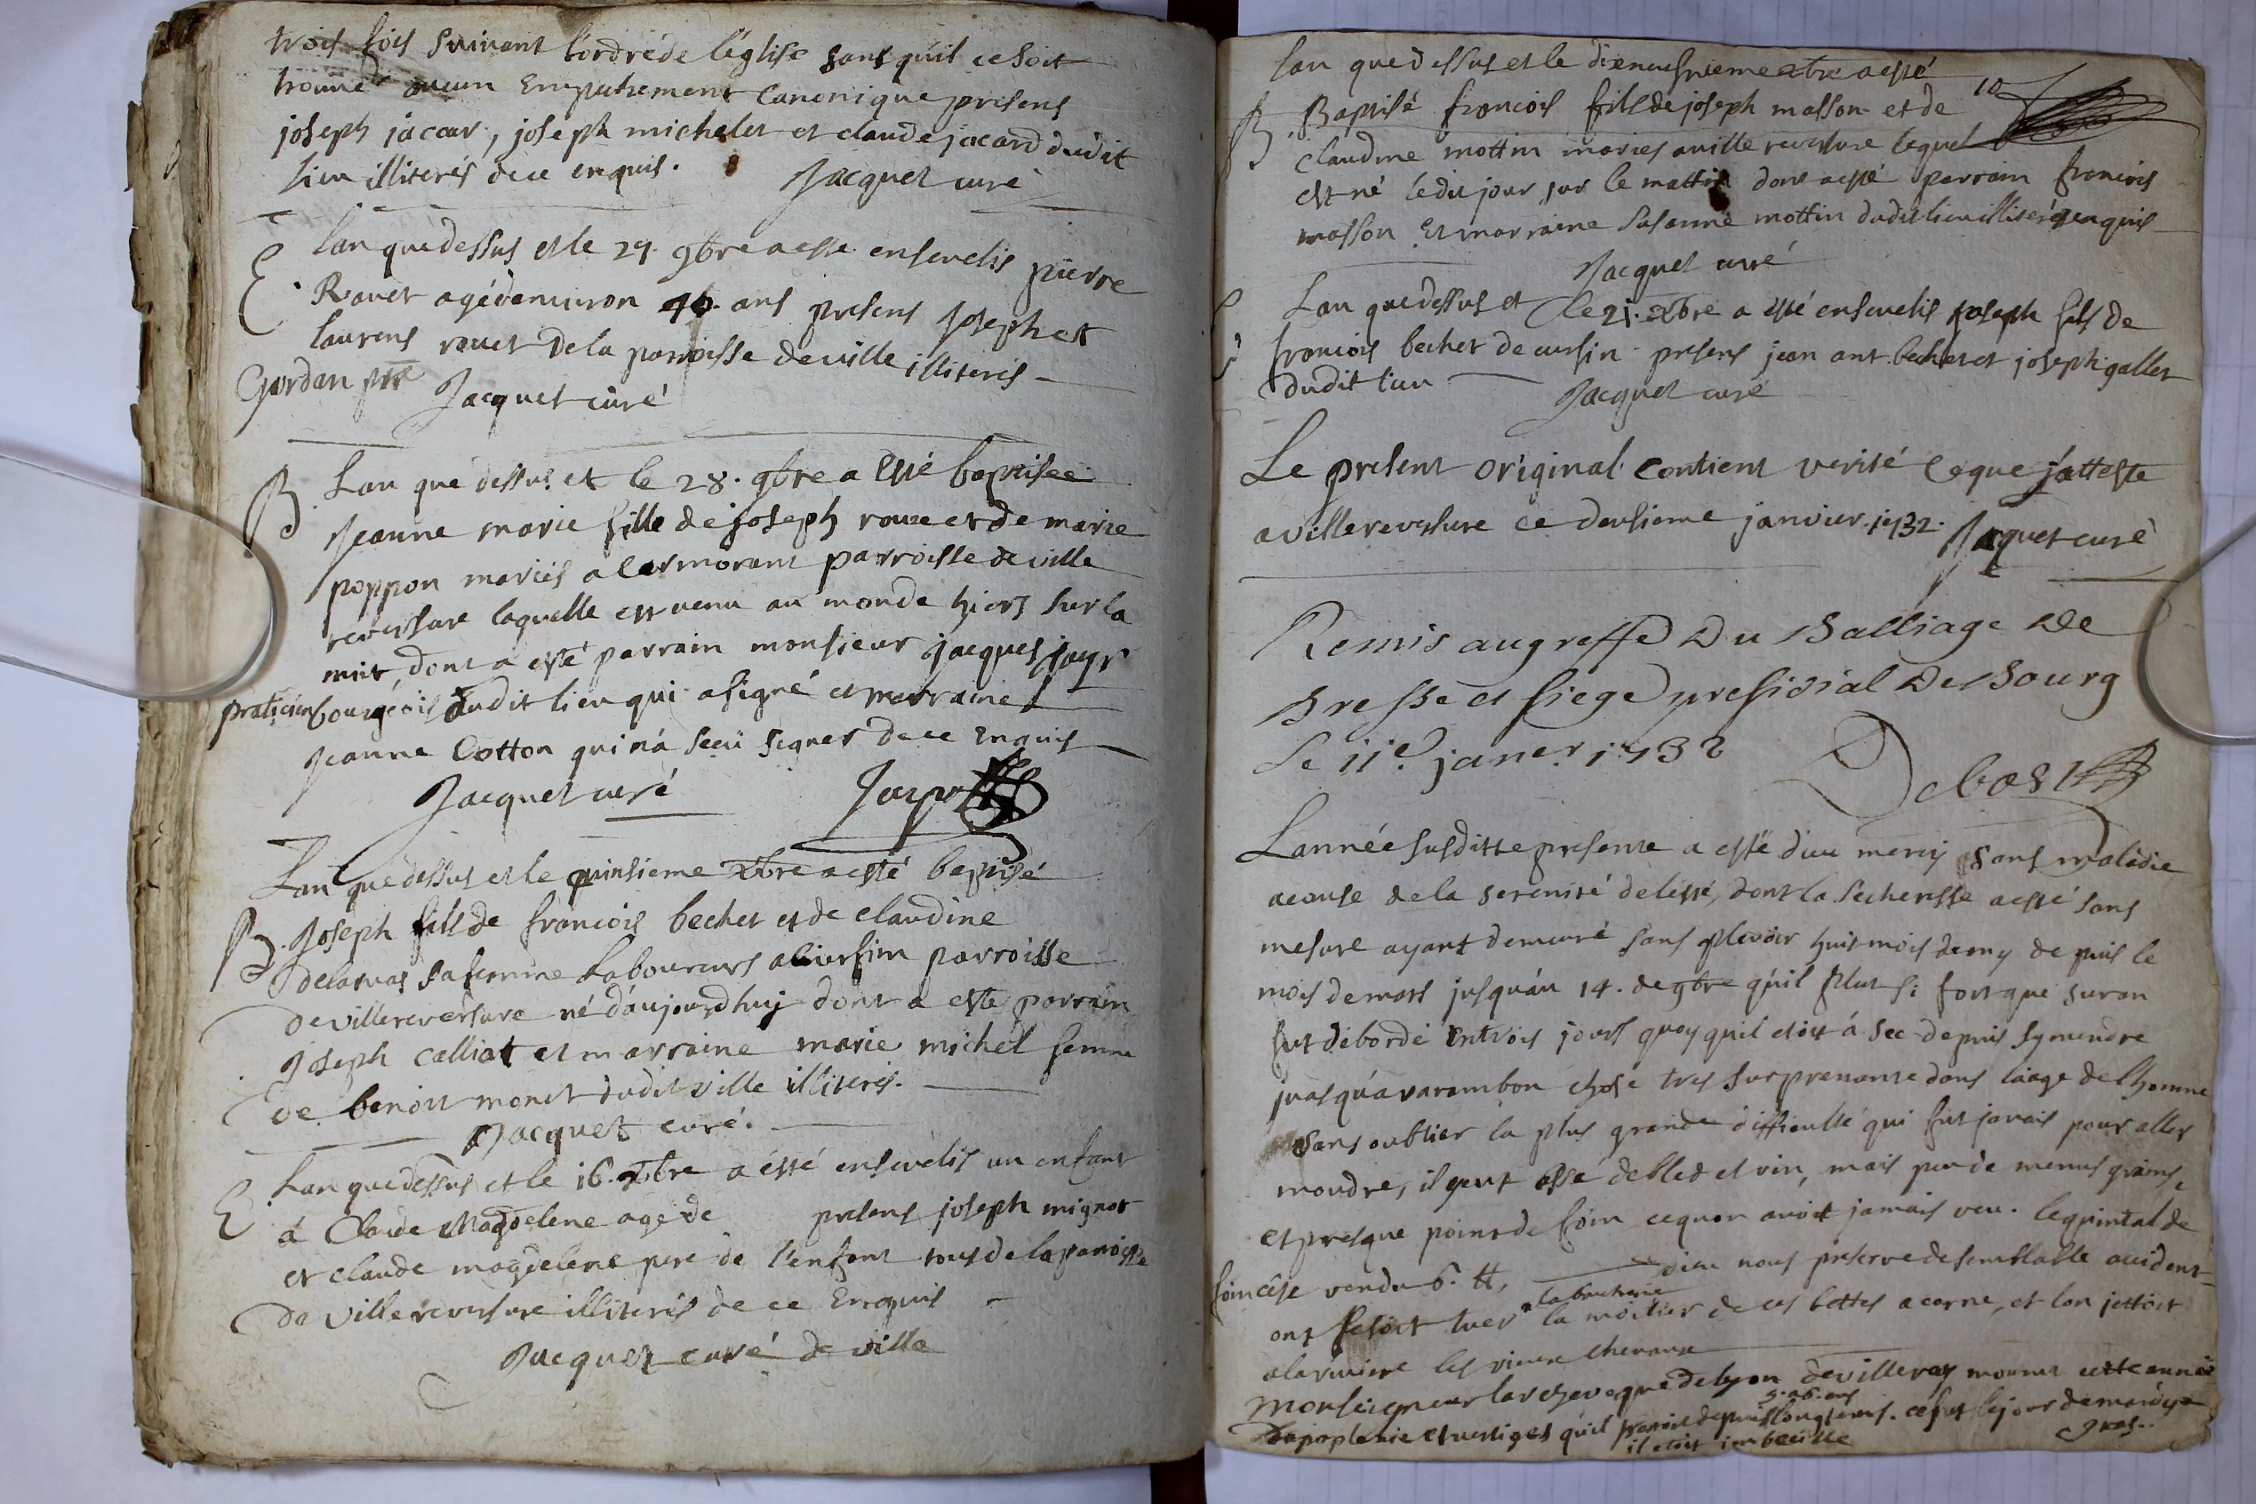 trois fois suivant l'ordre de l'église sans qu'il ce soit
trouvé aucun empechement canonique presens
joseph jacar, joseph michelet et claude jacard dudit
lieu illiterés de ce enquis. Jacquet curé
L'an que dessus et le 29. 9bre a esté enseuelis pierre
E Rauet agé denuiron ans presens joseph et
laurens rauet de la parroisse de ville illiterés
Gordan ptre Jacquet curé
B L'an que dessus et le 28. 9bre a esté baptisée
jeanne marie fille de joseph et de marie
poppon mariés a parroisse de ville
reversure laquelle est venu au monde hiers sur la
nuit, dont a esté parrain monsieur jacques jayr
praticien bourgeois dudit lieu qui a signé et marraine
jeanne Cotton qui n'a sceü signer de ce enquis
Jacquet curé Jayr
L'an que dessus et le quinsieme xbre a esté baptisé
B. Joseph fils de francois bechet et de claudine
delamas sa femme laboureurs a parroisse
de villereversure né d'aujourd'huy dont a esté parrain
joseph calliat et marraine marie michel femme
de benoit monet dudit ville illiterés.
Jacquet curé.
L'an que dessus et le 16. xbre a ésté enseuelis un enfant
E a Claude Magdelene agé de presens joseph mignot
et claude magdelene pere de l'enfant tous de la parroisse
de villereversure illiterés de ce enquis
Jacquet curé de ville
10
L'an que dessus et le dixneufuieme xbre a esté
B Baptisé francois fils de joseph masson et de
claudine mottin mariés a villereversure lequel
est né le dit jour sur le mattin dont a esté parrain francois
masson et marraine susanne mottin dudit lieu illiterés enquis
Jacquet curé
E L'an que dessus et le 21. xbre a esté enseuelis joseph fils de
francois bechet de cursin presens jean ant. bechet et joseph gallet
dudit lieu Jacquet curé
Le present original contient verité ce que j'atteste
a villereversure ce deusieme janvier. 1732. Jaquet curé
Remis au greffe du Balliage de
Bresse et siege presidial de Bourg
Le 11e. janer. 1732
Debost
L'année susditte presente a esté dieu mercy sans maladie
acause de la serenité de l'esté, dont la secheresse a esté sans
mesure ayant demeuré sans plevoir huit mois demy depuis le
mois de mars jusqu'au 14. de 9bre qu'il plut si fort que suran
fut débordé en trois jours quoy qu'il etoit a sec depuis symendre
jusqu'a varambon chose tres surprenante dans l'aage de l'homme
sans oublier la plus grande difficulté qui fut jamais pour aller
moudre, il y eut assé de bled et vin, mais peu de menus grains,
et presque point de foin ce qu'on avoit jamais veu. le quintal de
foin c'est vendu 6. tt, dieu nous preserve de semblable accident
a la boucherie
ont fesoit tuer la moitier de ces bettes a corne, et lon jettoit
a la riuiere les vieux chevaux
Monseigneur l'archeveque de lyon de villeroy mourut cette année
5. a 6. ans
d'apoplexie et vertiges qu'il prenoit depuis longtems. ce fut le jour de mardy
gras.
il etoit imbecille